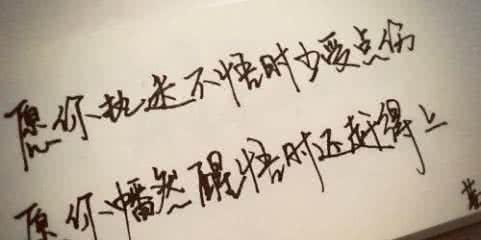 愿你执迷不悟时少受点伤
愿你幡然醒悟时还赶得上